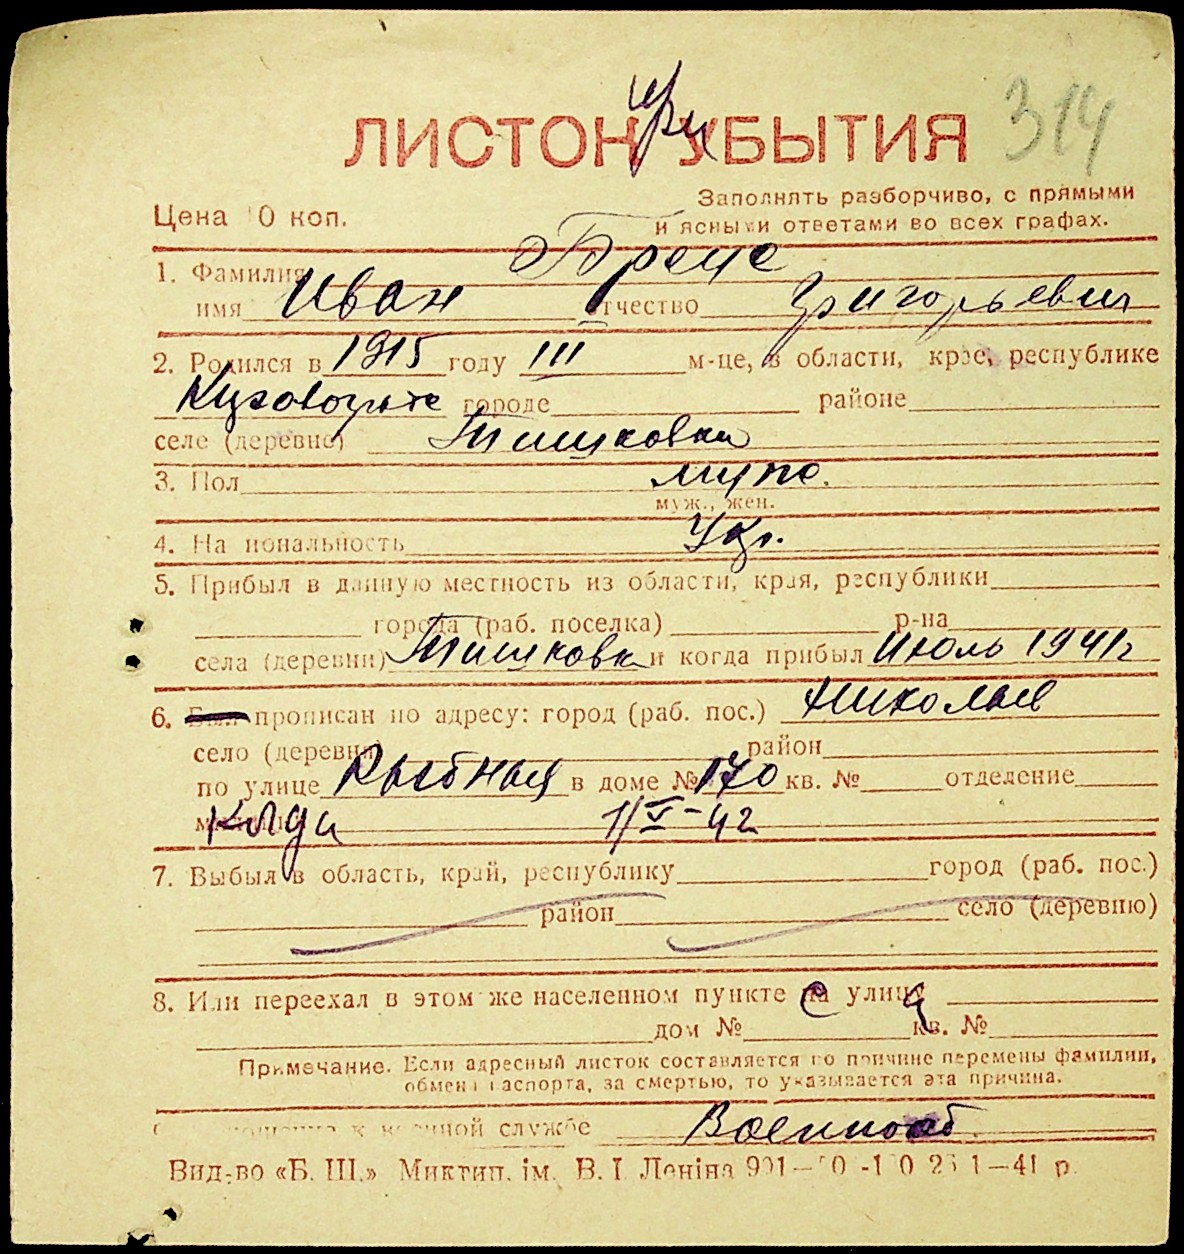 314
ЛИСТОК при УБЫТИЯ
Заполнять разборчиво, с прямыми
Цена 0 коп. и ясными ответами во всех графах.
1. Фамилия
имя Иван отчество Григорьевич
2. Родился в 1915 году III м-це, в области, крае, республике
городе районе
селе (деревне) Тишковки
3. Пол муж.
муж., жен.
4. Национальность Укр.
5. Прибыл в данную местность из области, края, республики
города (раб. поселка) р-на
села (деревни) Тишковки и когда прибыл Июль 1941 г
6. Был прописан по адресу: город (раб. пос.) Николаев
село (деревня) район
по улице Рыбная в доме № 170 кв. № отделение
1/V-42
7. Выбыл в область, край, республику город (раб. пос.)
район село (деревню)
8. Или переехал в этом же населенном пункте на улицу
дом № кв. №
Примечание. Если адресный листок составляется по причине перемены фамилии,
обмена паспорта, за смертью, то указывается эта причина.
к военной службе Военнооб.
Вид-во «Б. Ш.» Миктип. ім. В. І. Леніна